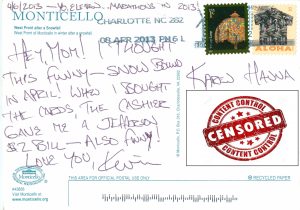 4/6/2013 -
MONTICELLO
West Point after a Snowfall
West Point at Monticello in winter after a snowfall
CHARLOTTE NC 282
08 APR 2013 PM 6 L
ALOHA
HEY MOM! I THOUGHT
THIS FUNNY - SNOW BOUND
IN APRIL! WHEN I BOUGHT
THE CARDS, THE CASHIER
GAVE ME A JEFFERSON
$2 BILL - ALSO FUNNY!
LOVE YOU, KEVIN
KAREN HANNA
CONTENT CONTROL
CENSORED
CONTENT CONTROL
MONTICELLO
#43688
Visit Monticello at
www.monticello.org
THIS AREA FOR OFFICIAL POSTAL USE ONLY
RECYCLED PAPER